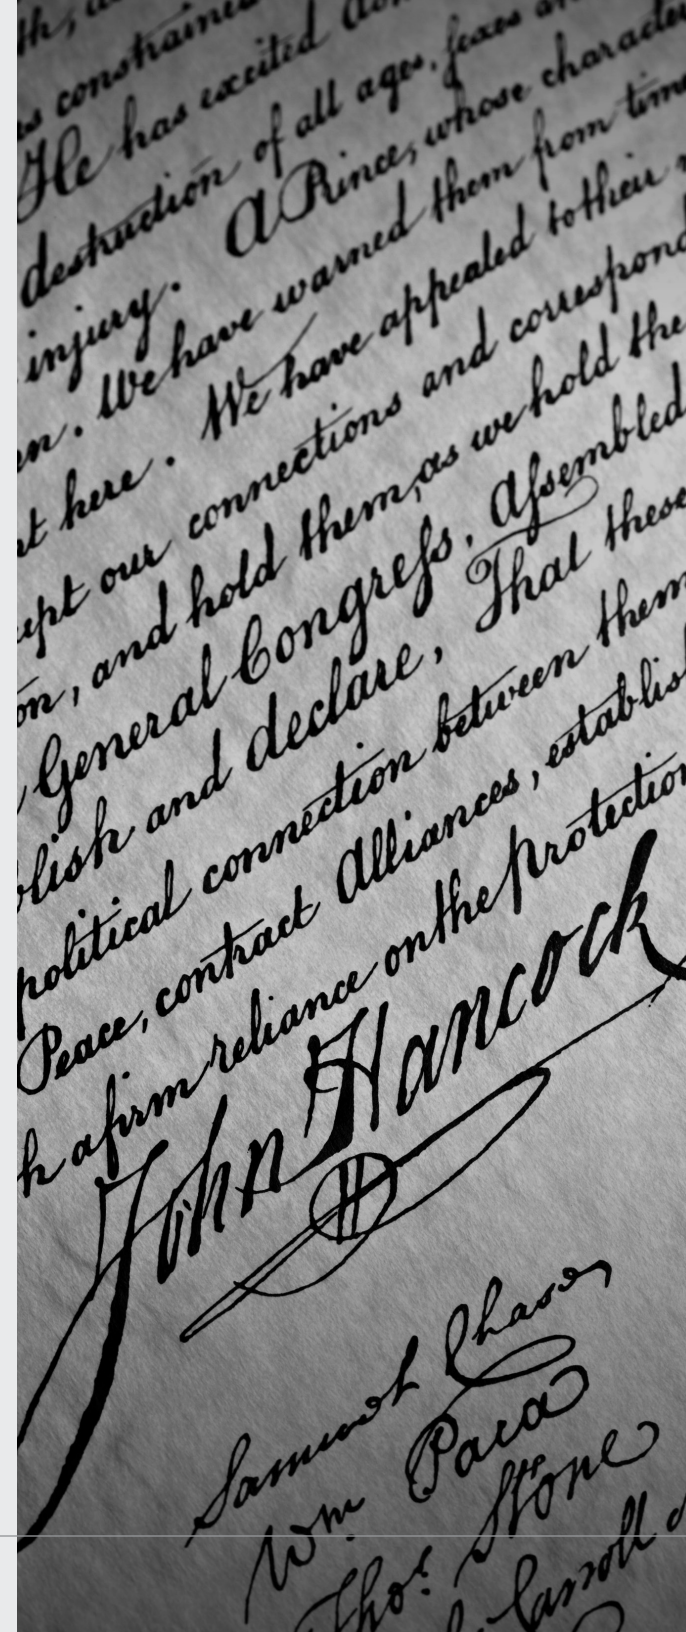 constrained
He has excited
destruction of all ages, sexes
injury. A Prince, whose character
We have warned them from time
here. We have appealed to their
our connections and correspond
and hold them, as we hold the
General Congress, Assembled
and declare, That these
political connection between them
Peace, contract Alliances, establis
h a firm reliance on the protection
John Hancock
Samuel Chase
Wm Paca
Thos. Stone
Carroll